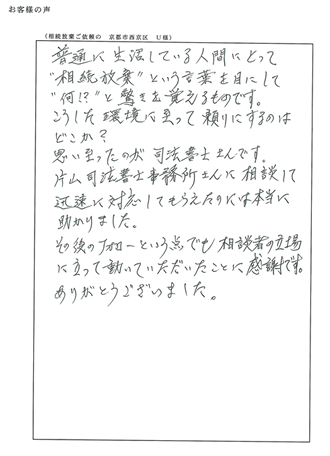 お客様の声
(相続放棄ご依頼の 京都市西京区 U様)
普通に生活している人間にとって
"相続放棄"という言葉を目にして
"何!?"と驚きを覚えるものです。
こうした環境に至って頼りにするのは
どこか?
思い至ったのが司法書士さんです。
片山司法書士事務所さんに相談して
迅速に対応してもらえたのには本当に
助かりました。
その後のフォローという点でも相談者の立場
に立って動いていただいたことに感謝です。
ありがとうございました。